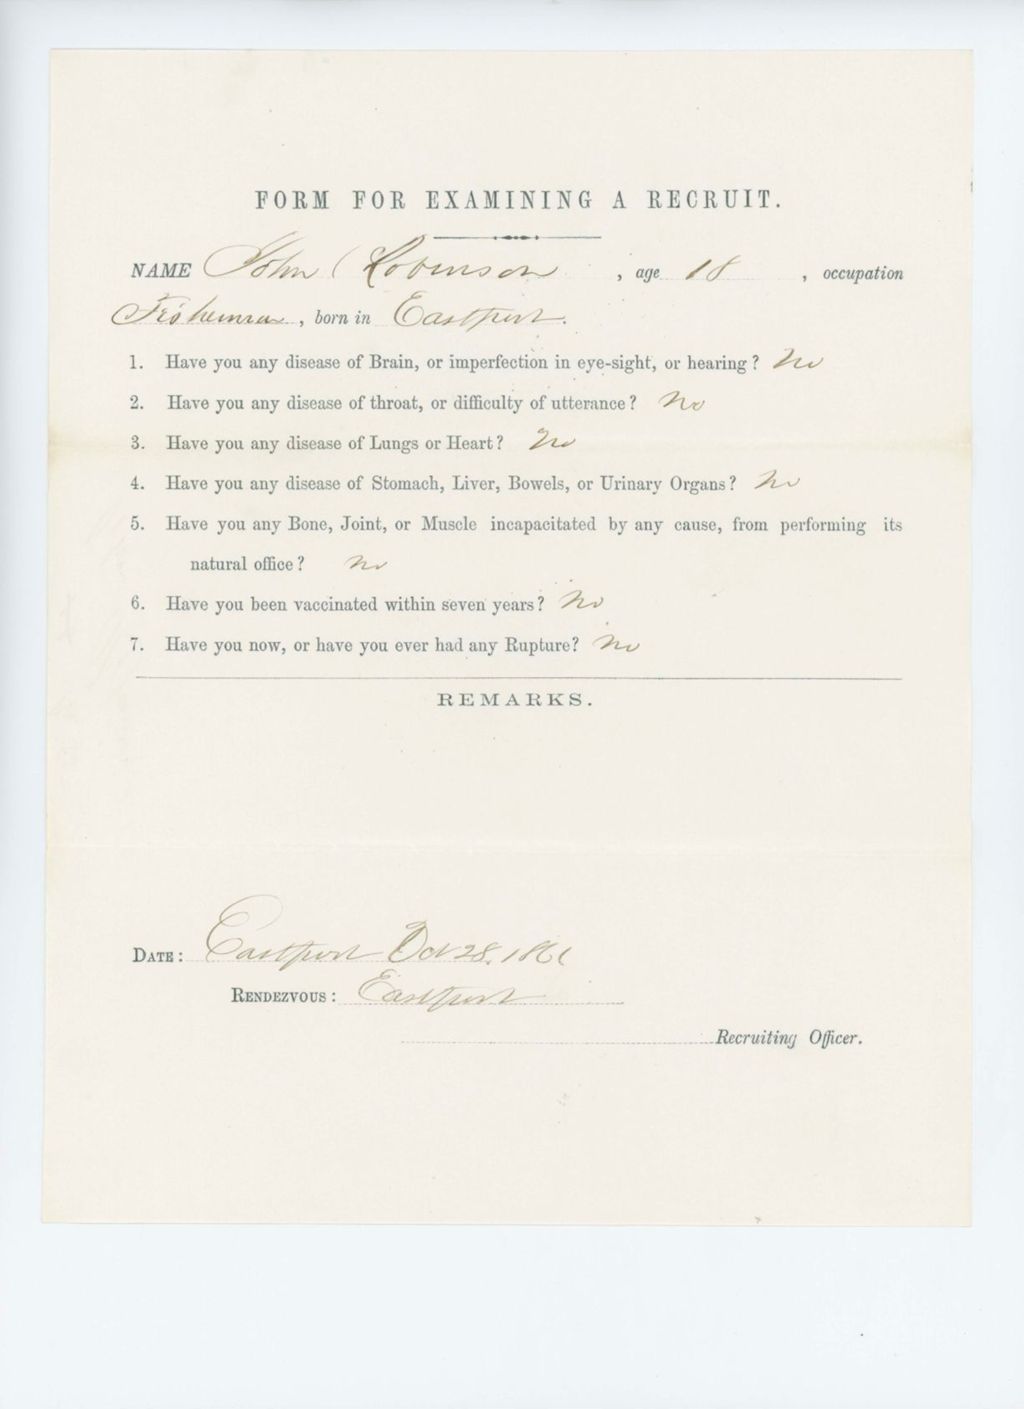 FORM FOR EXAMINING A RECRUIT.
NAME John Robinson , age 18 , occupation
Fisherman , born in Eastport.
1. Have you any disease of Brain, or imperfection in eye-sight, or hearing ? No
2. Have you any disease of throat, or difficulty of utterance ? No
3. Have you any disease of Lungs or Heart ? No
4. Have you any disease of Stomach, Liver, Bowels, or Urinary Organs ? No
5. Have you any Bone, Joint, or Muscle incapacitated by any cause, from performing its
natural office ? No
6. Have you been vaccinated within seven years ? No
7. Have you now, or have you ever had any Rupture? No
REMARKS.
DATE: Eastport Oct 28. 1861
RENDEZVOUS: Eastport
Recruiting Officer.